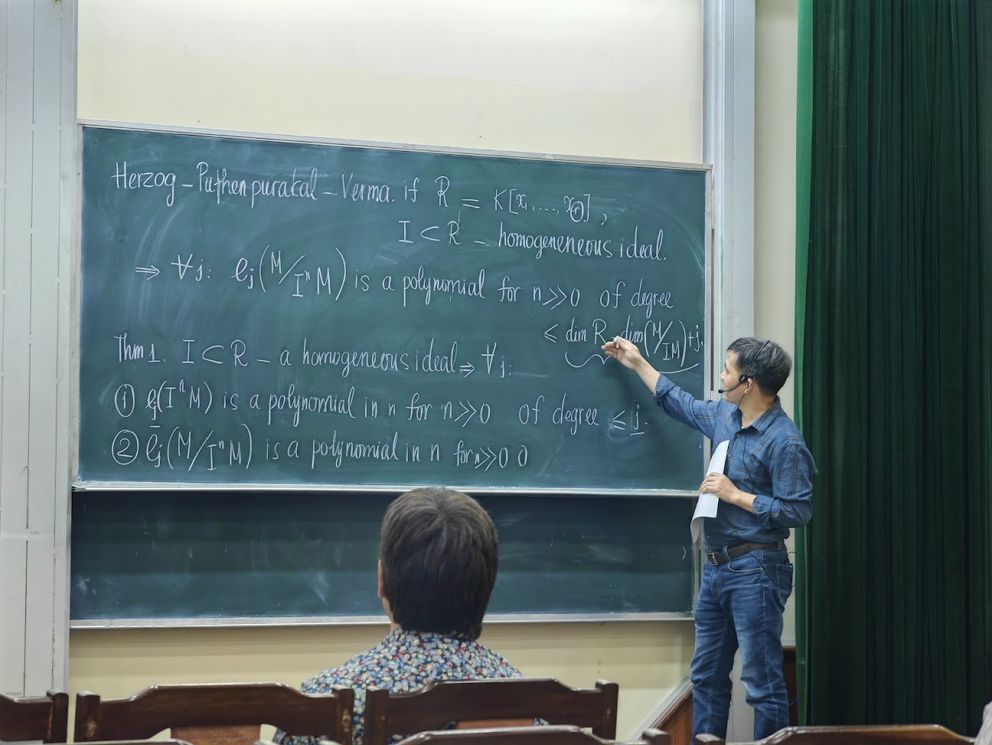 Herzog – Puthenpurakal – Verma. if R = K[x₁, ..., x₀],
I ⊂ R – homogeneneous ideal.
⇒ ∀j: ℓⱼ(M/IⁿM) is a polynomial for n≫0 of degree
≤ dim R - dim(M/IM)+j.
Thm 1. I ⊂ R – a homogeneous ideal ⇒ ∀j:
① ℓⱼ(IⁿM) is a polynomial in n for n≫0 of degree ≤ j.
② ℓⱼ(M/IⁿM) is a polynomial in n for n≫0 0